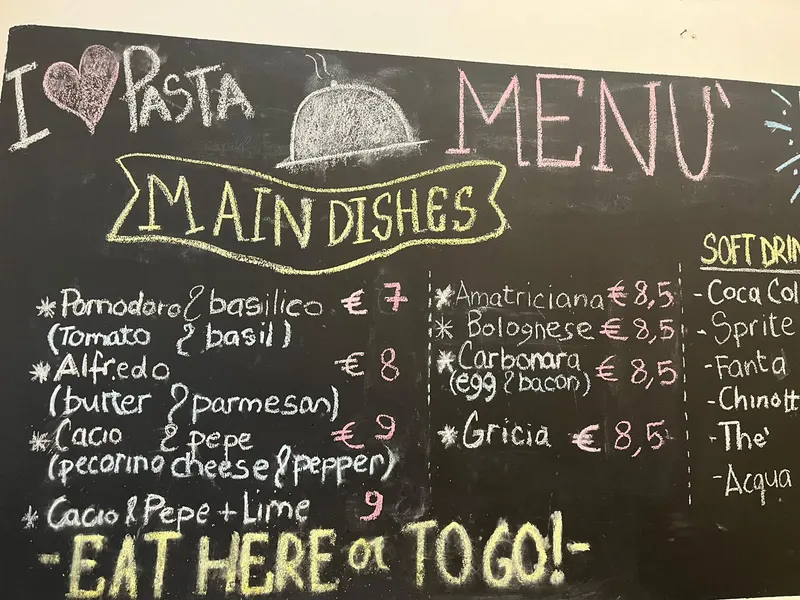 I PASTA
MENU'
MAIN DISHES
* Pomodoro & basilico € 7
(Tomato & basil)
* Alfredo € 8
(butter & parmesan)
* Cacio & pepe € 9
(pecorino cheese & pepper)
* Cacio & Pepe + Lime 9
* Amatriciana € 8,5
* Bolognese € 8,5
* Carbonara € 8,5
(egg & bacon)
* Gricia € 8,5
SOFT DRIN
- Coca Col
- Sprite
- Fanta
- Chinott
- The'
- Acqua
- EAT HERE or TO GO! -